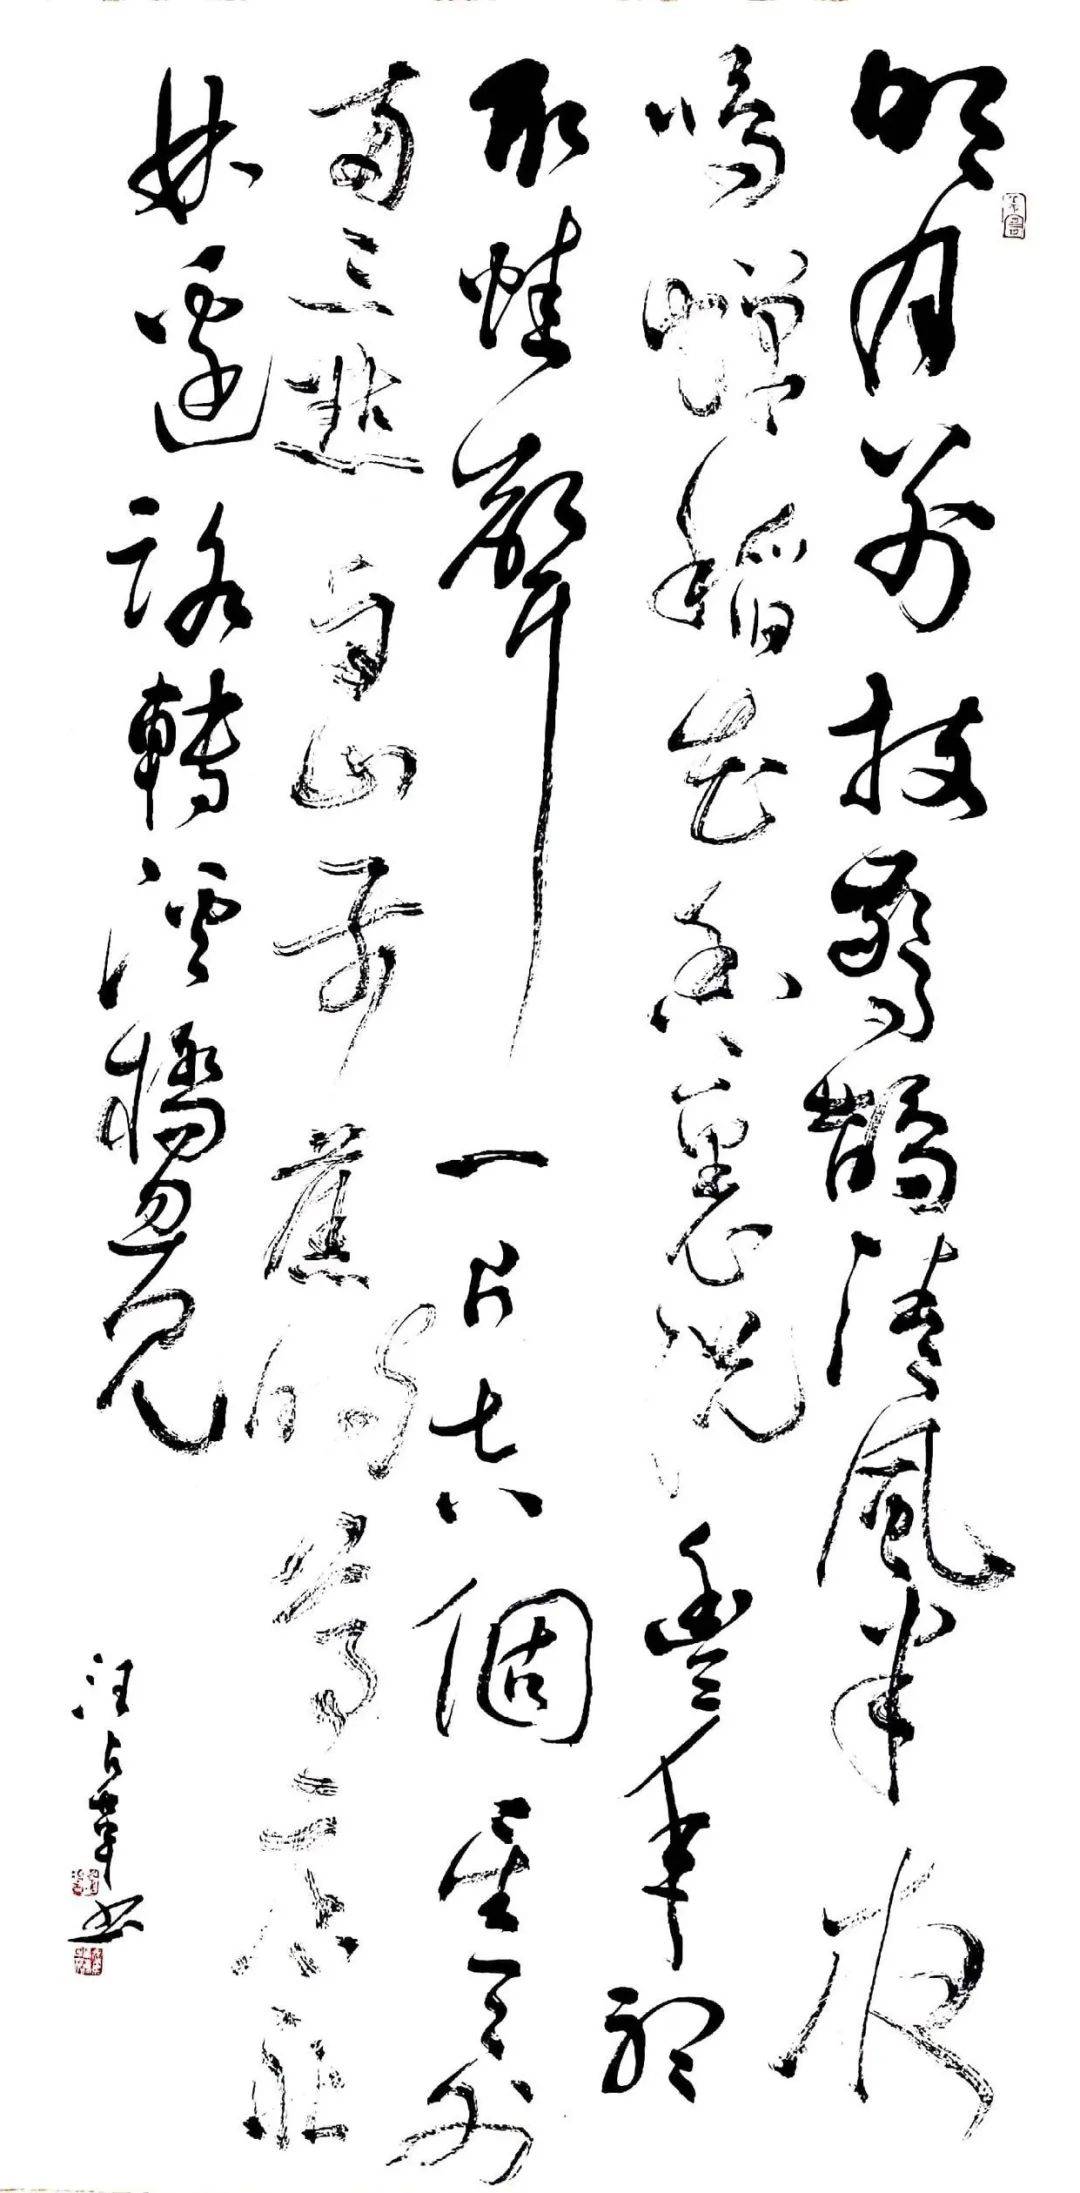 明月别枝驚鵲清風半夜
鳴蟬稻花香裏説豐年聽
取蛙聲一片七八個星天外
兩三點雨山前舊時茅店社
林邊路轉溪橋忽見
汪占革书